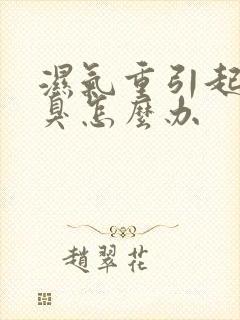 濕氣重引起
臭怎麼办
趙翠花